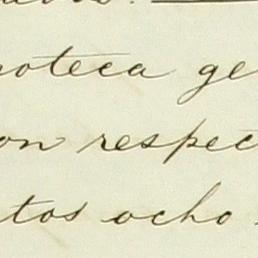 oteca ge
on respec
tos ocho